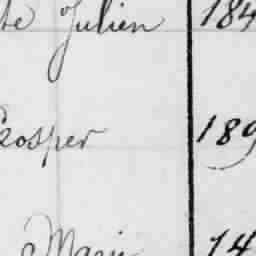 te Julien 184
rosper 189
Marie 14